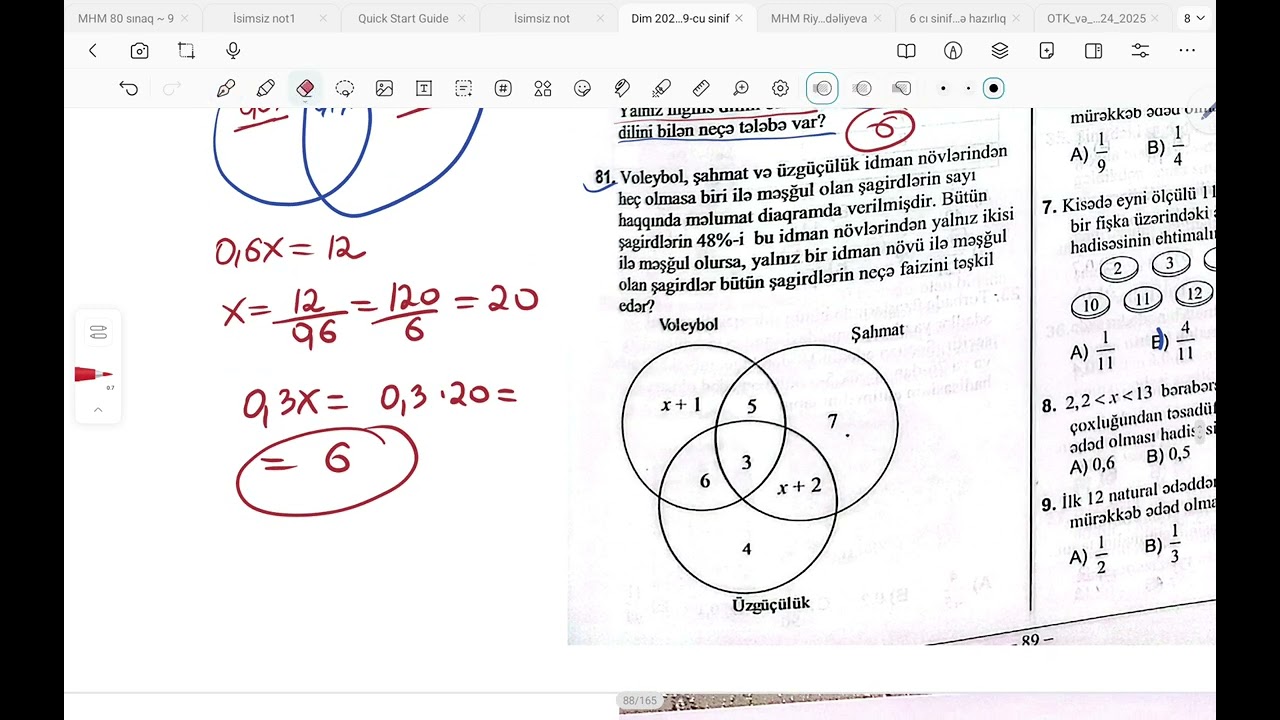 MHM 80 sınaq ~ 9
İsimsiz not1
Quick Start Guide
İsimsiz not
Dim 202...9-cu sinif
MHM Riy...dəliyeva
6 cı sinif...ə hazırlıq
OTK_və_...24_2025
8
0,6x = 12
x = 12/96 = 120/6 = 20
0,3x = 0,3 · 20 =
= 6
dilini bilən neçə tələbə var?
6
81. Voleybol, şahmat və üzgüçülük idman növlərindən
heç olmasa biri ilə məşğul olan şagirdlərin sayı
haqqında məlumat diaqramda verilmişdir. Bütün
şagirdlərin 48%-i bu idman növlərindən yalnız ikisi
ilə məşğul olursa, yalnız bir idman növü ilə məşğul
olan şagirdlər bütün şagirdlərin neçə faizini təşkil
edər?
Voleybol
Şahmat
x + 1
5
7
3
6
x + 2
4
Üzgüçülük
mürəkkəb ədəd
A) 1/9 B) 1/4
7. Kisədə eyni ölçülü 11
bir fişka üzərindəki
hadisəsinin ehtimalı
2 3
10 11 12
A) 1/11 B) 4/11
8. 2,2 < x < 13 bərabər
çoxluğundan təsadüf
ədəd olması hadis
A) 0,6 B) 0,5
9. İlk 12 natural ədəddə
mürəkkəb ədəd olma
A) 1/2 B) 1/3
89 –
88/165
0.7